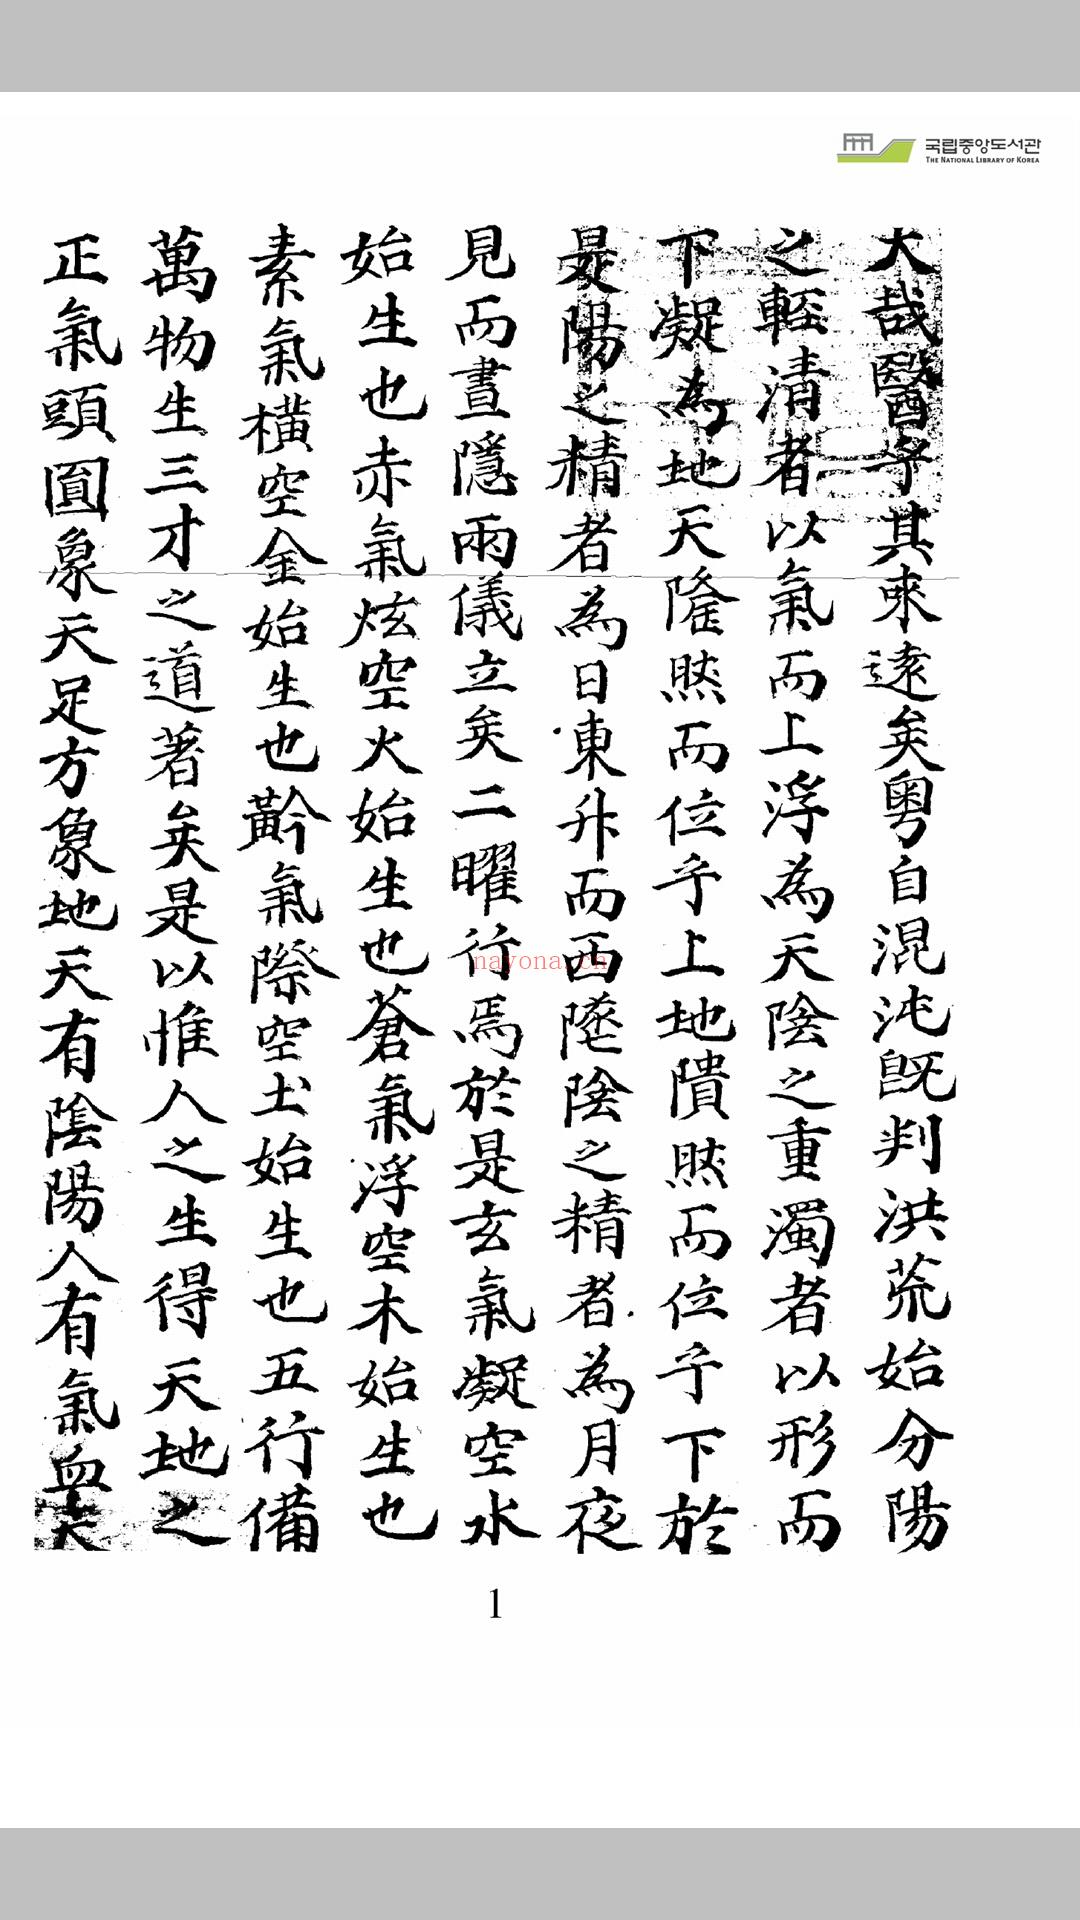 국립중앙도서관
THE NATIONAL LIBRARY OF KOREA
大哉醫乎其來遠矣粵自混沌旣判洪荒始分陽
之輕清者以氣而上浮為天陰之重濁者以形而
下凝為地天隆然而位乎上地隤然而位乎下於
是陽之精者為日東升而西墬陰之精者為月夜
見而晝隱兩儀立矣二曜行焉於是玄氣凝空水
始生也赤氣炫空火始生也蒼氣浮空木始生也
素氣橫空金始生也黅氣際空土始生也五行備
萬物生三才之道著矣是以惟人之生得天地之
正氣頭圓象天足方象地天有陰陽人有氣血天
nayona.cn
1